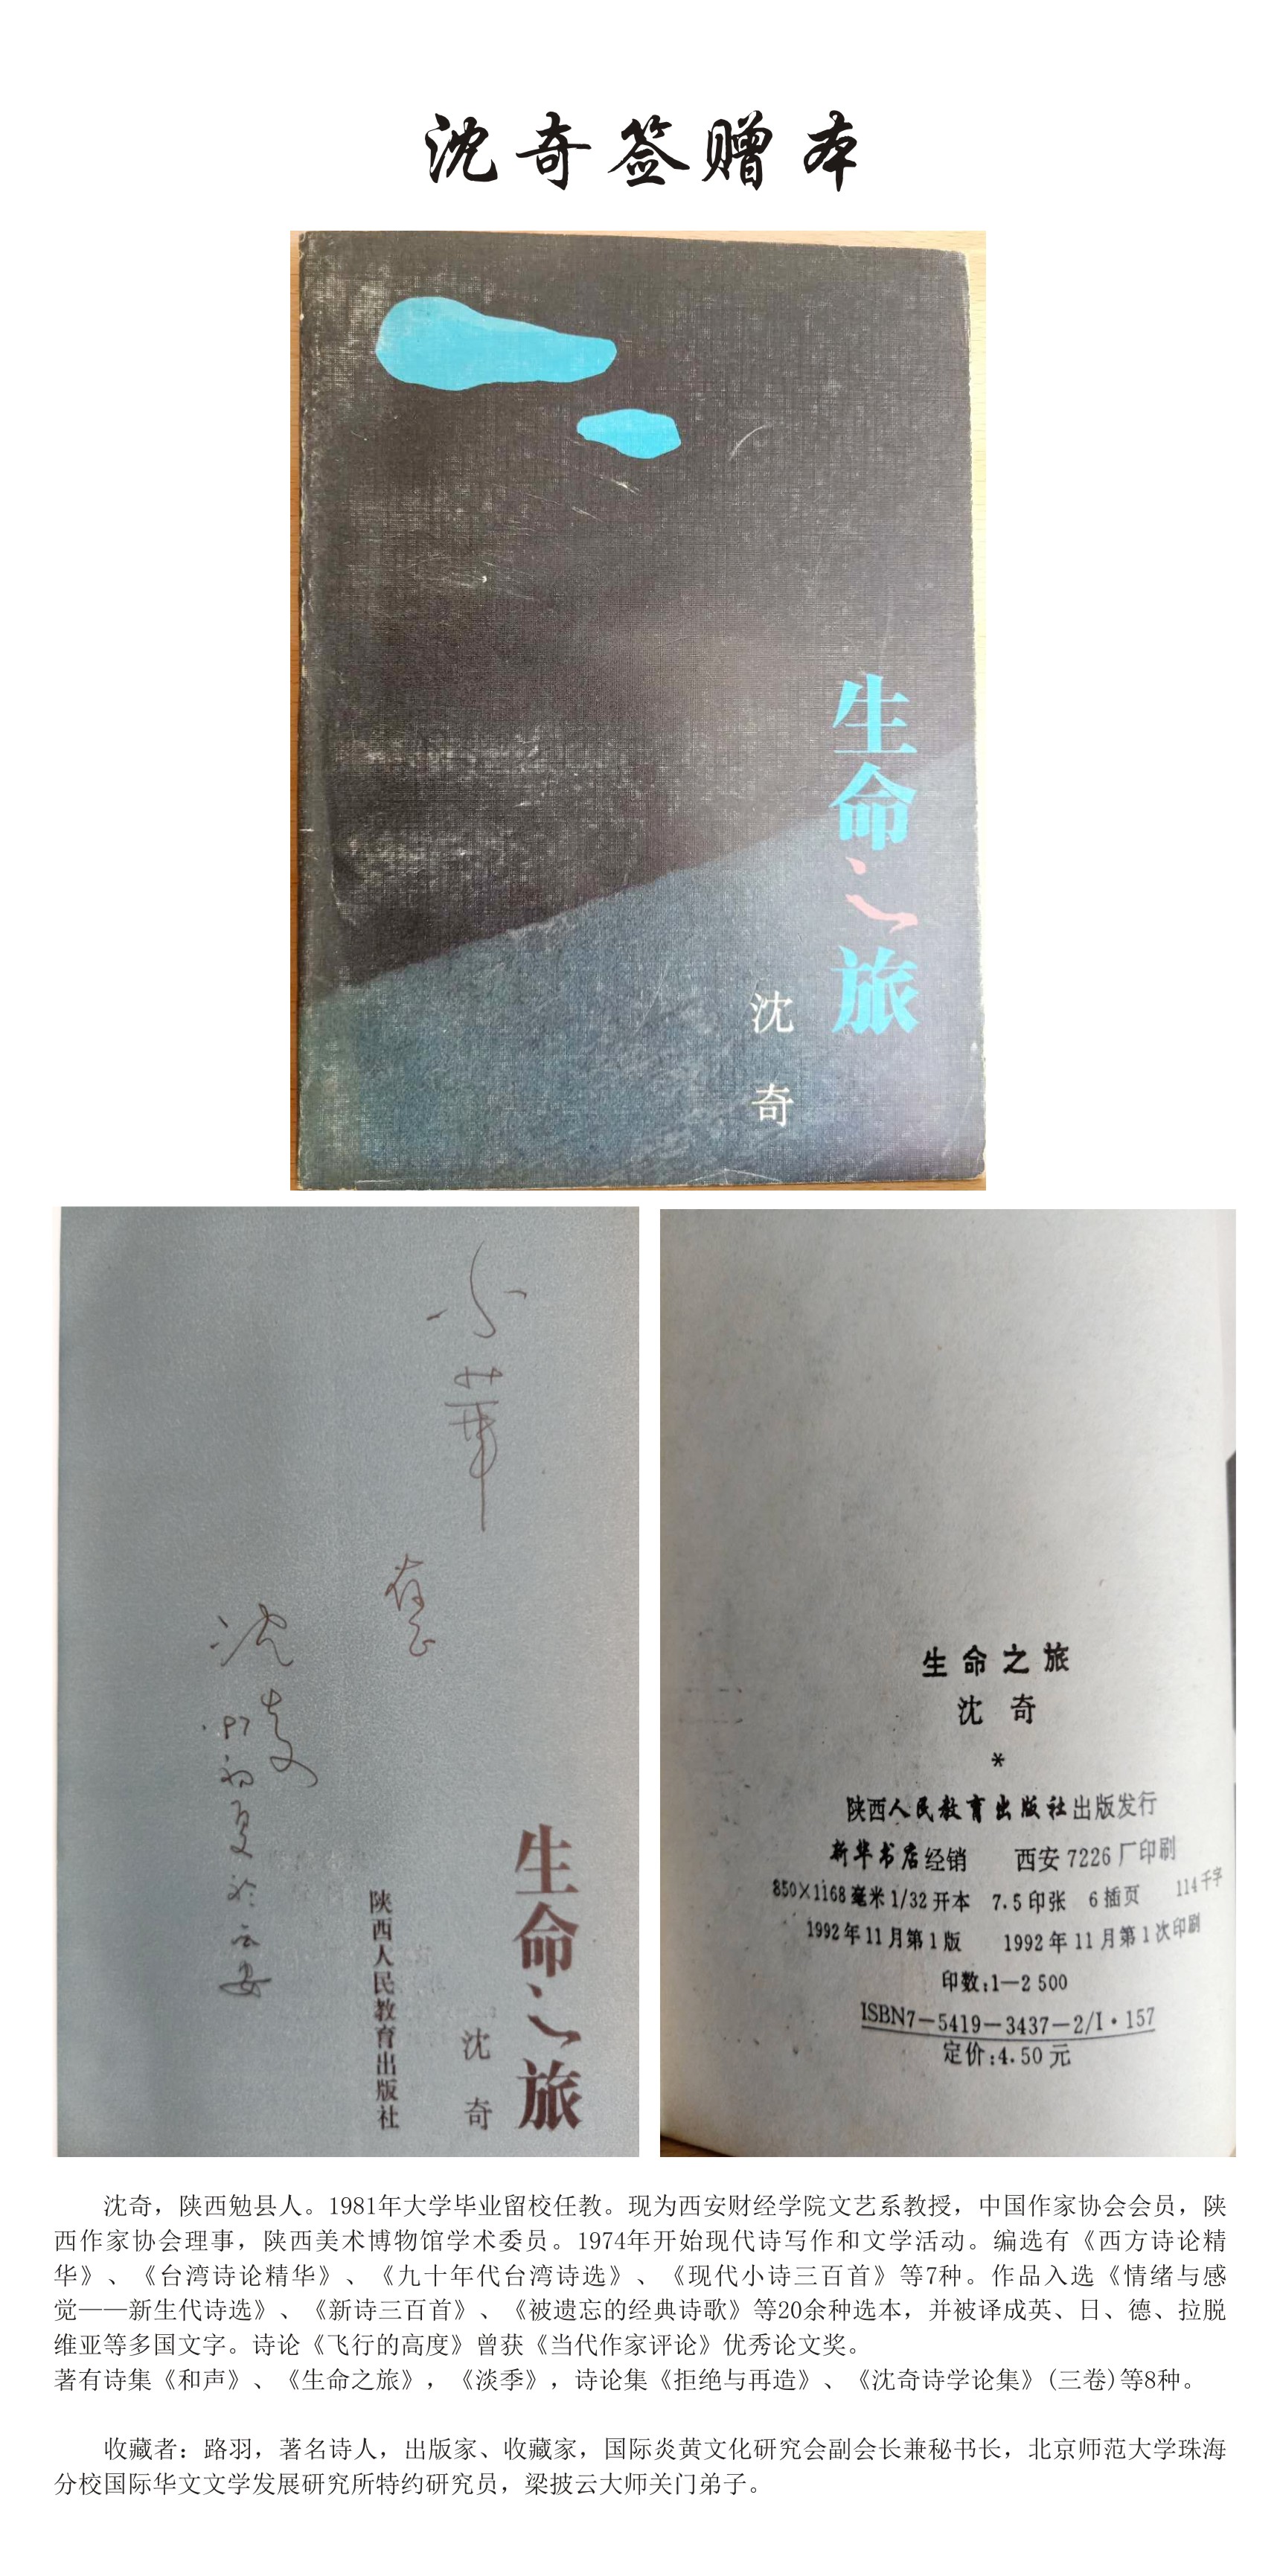 沈奇签赠本
生命之旅
沈奇
小华
存正
沈奇
.97初夏於西安
生命之旅
沈奇
陕西人民教育出版社
生命之旅
沈奇
*
陕西人民教育出版社出版发行
新华书店经销 西安7226厂印刷
850×1168毫米1/32开本 7.5印张 6插页 114千字
1992年11月第1版 1992年11月第1次印刷
印数:1—2 500
ISBN7—5419—3437—2/I·157
定价:4.50元
沈奇，陕西勉县人。1981年大学毕业留校任教。现为西安财经学院文艺系教授，中国作家协会会员，陕
西作家协会理事，陕西美术博物馆学术委员。1974年开始现代诗写作和文学活动。编选有《西方诗论精
华》、《台湾诗论精华》、《九十年代台湾诗选》、《现代小诗三百首》等7种。作品入选《情绪与感
觉——新生代诗选》、《新诗三百首》、《被遗忘的经典诗歌》等20余种选本，并被译成英、日、德、拉脱
维亚等多国文字。诗论《飞行的高度》曾获《当代作家评论》优秀论文奖。
著有诗集《和声》、《生命之旅》，《淡季》，诗论集《拒绝与再造》、《沈奇诗学论集》(三卷)等8种。
收藏者：路羽，著名诗人，出版家、收藏家，国际炎黄文化研究会副会长兼秘书长，北京师范大学珠海
分校国际华文文学发展研究所特约研究员，梁披云大师关门弟子。